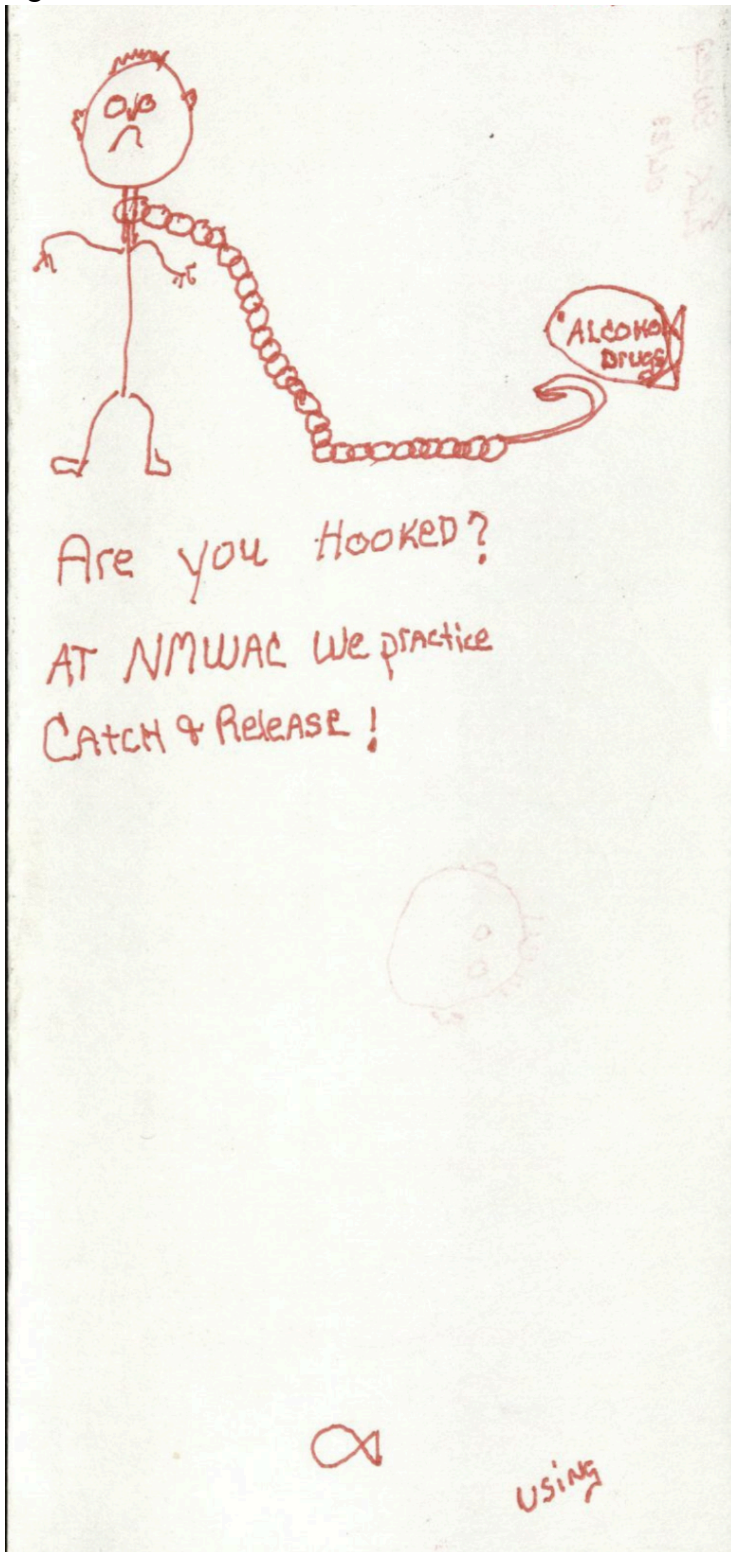 ALCOHOL
Drugs
Are you Hooked?
AT NMWAC We practice
CAtCH & Release!
using